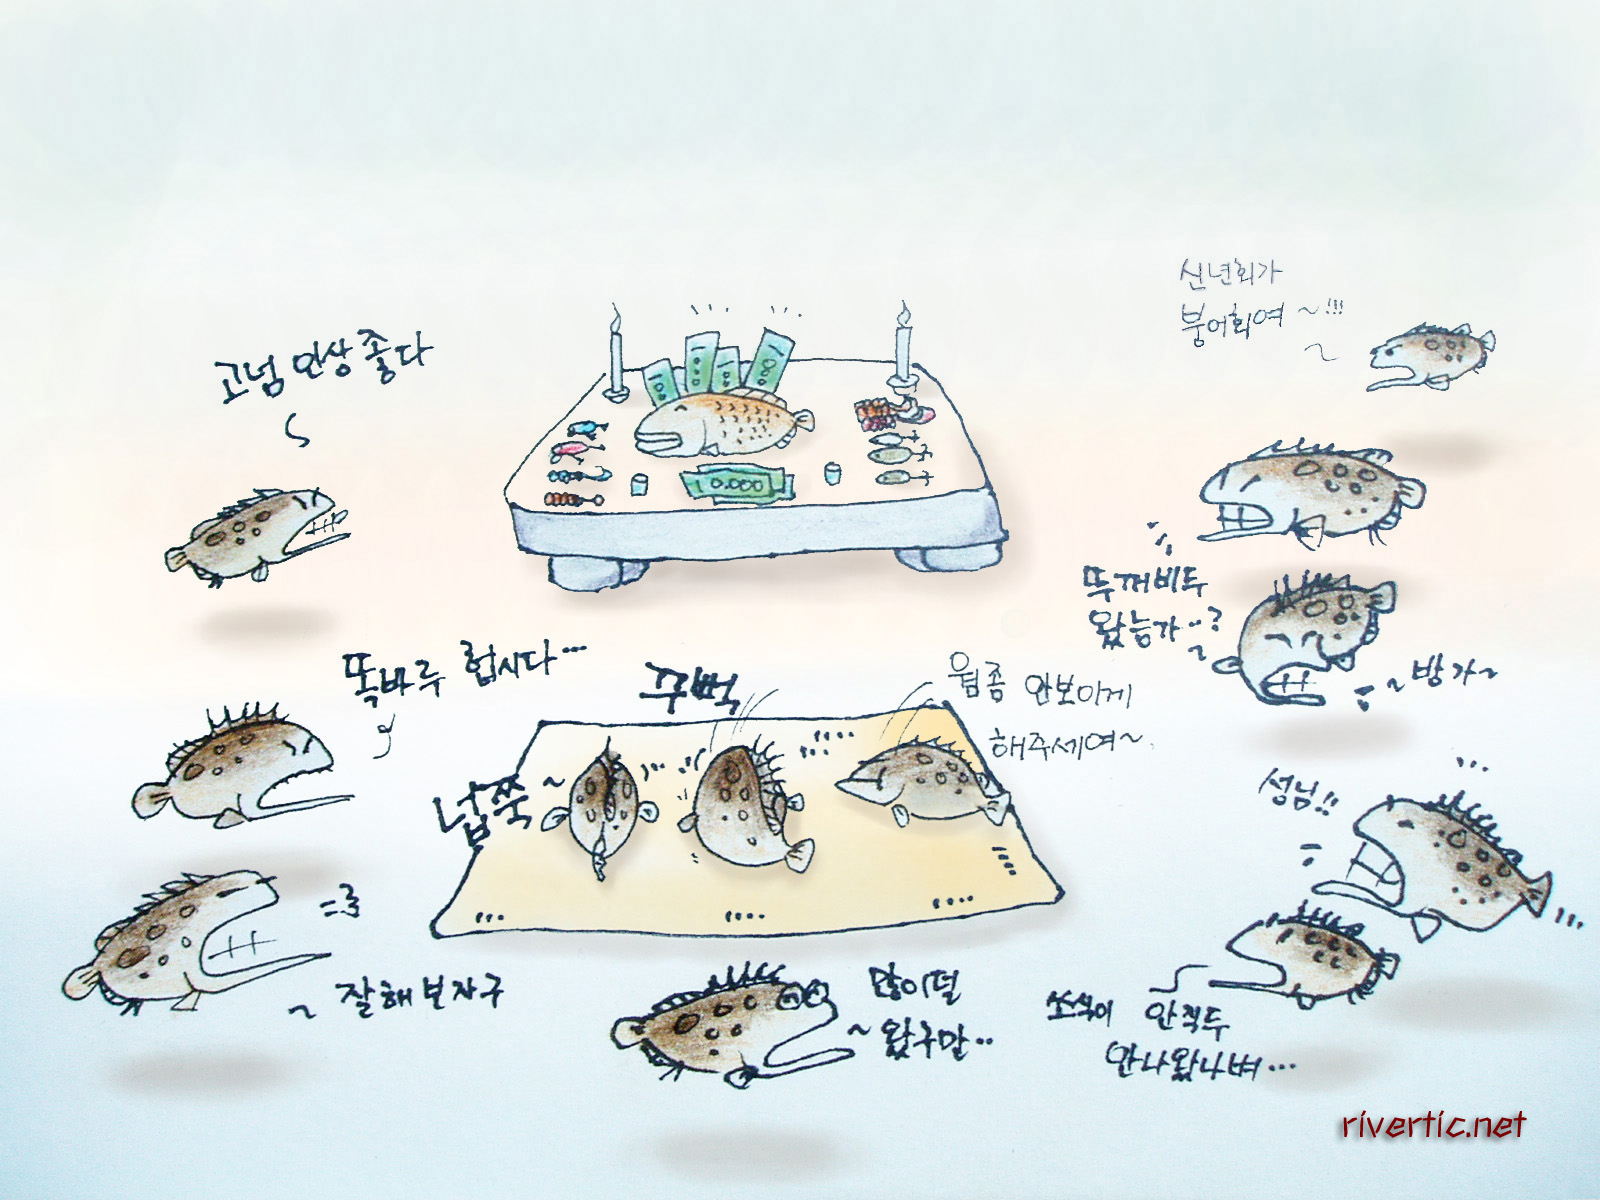 신년회가
붕어회여~!!!
고넘 인상 좋다
0.000
뚜꺼비두
왔능가..?
~방가~
똑바루 헙시다...
꾸뻑
웜좀 안보이게
해주세여~
넙쭉~
성님!!
~잘해보자구
많이덜
~왔구만..
쏘식이 안직두
안나왔나벼...
rivertic.net